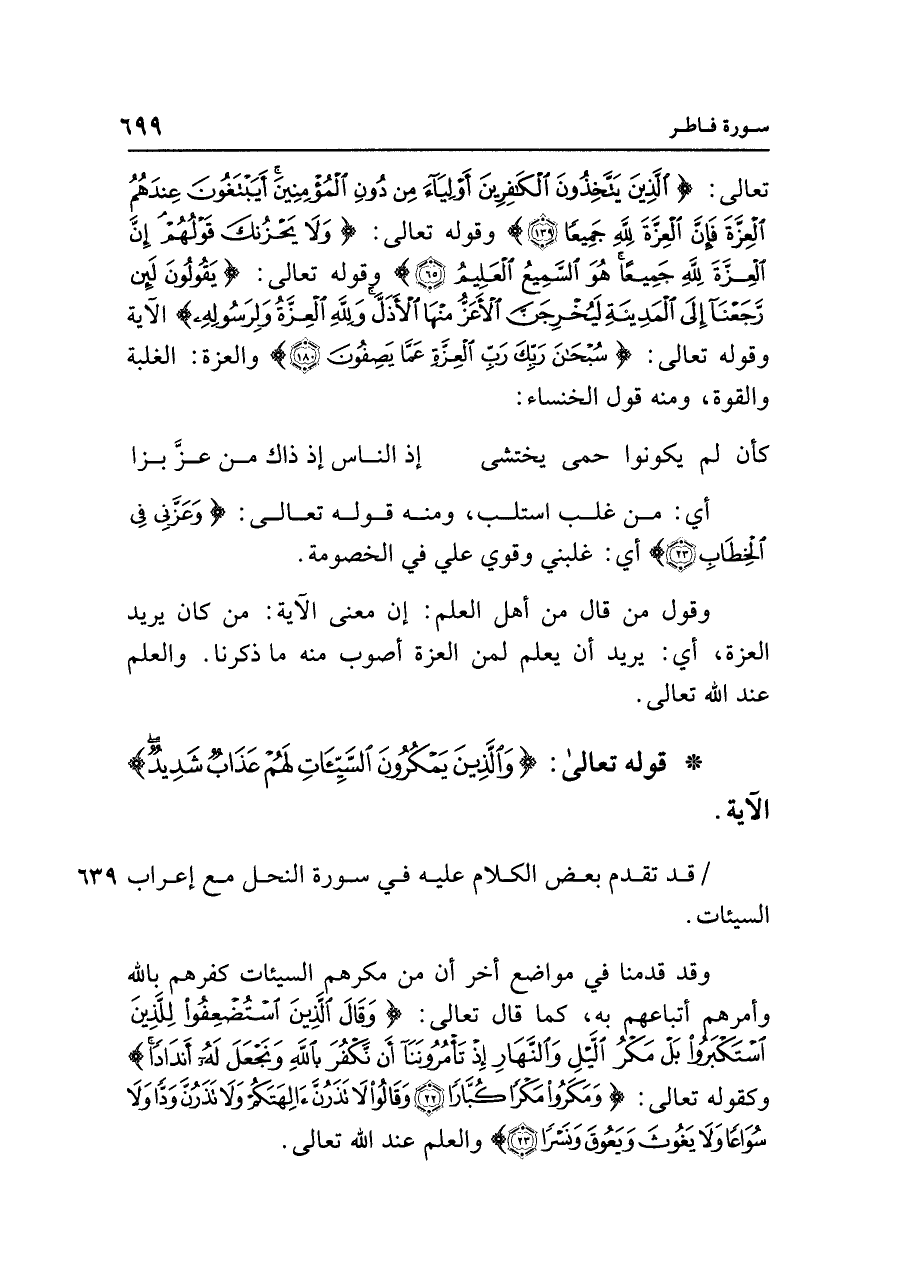 سورة فاطر ٦٩٩
تعالى: ﴿ ٱلَّذِينَ يَتَّخِذُونَ ٱلْكَٰفِرِينَ أَوْلِيَآءَ مِن دُونِ ٱلْمُؤْمِنِينَۚ أَيَبْتَغُونَ عِندَهُمُ
ٱلْعِزَّةَ فَإِنَّ ٱلْعِزَّةَ لِلَّهِ جَمِيعًا ١٣٩﴾ وقوله تعالى: ﴿ وَلَا يَحْزُنكَ قَوْلُهُمْۘ إِنَّ
ٱلْعِزَّةَ لِلَّهِ جَمِيعًاۚ هُوَ ٱلسَّمِيعُ ٱلْعَلِيمُ ٦٥﴾ وقوله تعالى: ﴿ يَقُولُونَ لَئِن
رَّجَعْنَآ إِلَى ٱلْمَدِينَةِ لَيُخْرِجَنَّ ٱلْأَعَزُّ مِنْهَا ٱلْأَذَلَّۚ وَلِلَّهِ ٱلْعِزَّةُ وَلِرَسُولِهِۦ﴾ الآية
وقوله تعالى: ﴿ سُبْحَٰنَ رَبِّكَ رَبِّ ٱلْعِزَّةِ عَمَّا يَصِفُونَ ١٨٠﴾ والعزة: الغلبة
والقوة، ومنه قول الخنساء:
كأن لم يكونوا حمى يختشى إذ الناس إذ ذاك من عزَّ بزا
أي: من غلب استلب، ومنه قوله تعالى: ﴿ وَعَزَّنِى فِى
ٱلْخِطَابِ ٢٣﴾ أي: غلبني وقوي علي في الخصومة.
وقول من قال من أهل العلم: إن معنى الآية: من كان يريد
العزة، أي: يريد أن يعلم لمن العزة أصوب منه ما ذكرنا. والعلم
عند الله تعالى.
* قوله تعالىٰ: ﴿ وَٱلَّذِينَ يَمْكُرُونَ ٱلسَّيِّـَٔاتِ لَهُمْ عَذَابٌ شَدِيدٌۖ﴾
الآية.
/ قد تقدم بعض الكلام عليه في سورة النحل مع إعراب ٦٣٩
السيئات.
وقد قدمنا في مواضع أخر أن من مكرهم السيئات كفرهم بالله
وأمرهم أتباعهم به، كما قال تعالى: ﴿ وَقَالَ ٱلَّذِينَ ٱسْتُضْعِفُوا۟ لِلَّذِينَ
ٱسْتَكْبَرُوا۟ بَلْ مَكْرُ ٱلَّيْلِ وَٱلنَّهَارِ إِذْ تَأْمُرُونَنَآ أَن نَّكْفُرَ بِٱللَّهِ وَنَجْعَلَ لَهُۥٓ أَندَادًاۚ﴾
وكقوله تعالى: ﴿ وَمَكَرُوا۟ مَكْرًا كُبَّارًا ٢٢ وَقَالُوا۟ لَا تَذَرُنَّ ءَالِهَتَكُمْ وَلَا تَذَرُنَّ وَدًّا وَلَا
سُوَاعًا وَلَا يَغُوثَ وَيَعُوقَ وَنَسْرًا ٢٣﴾ والعلم عند الله تعالى.